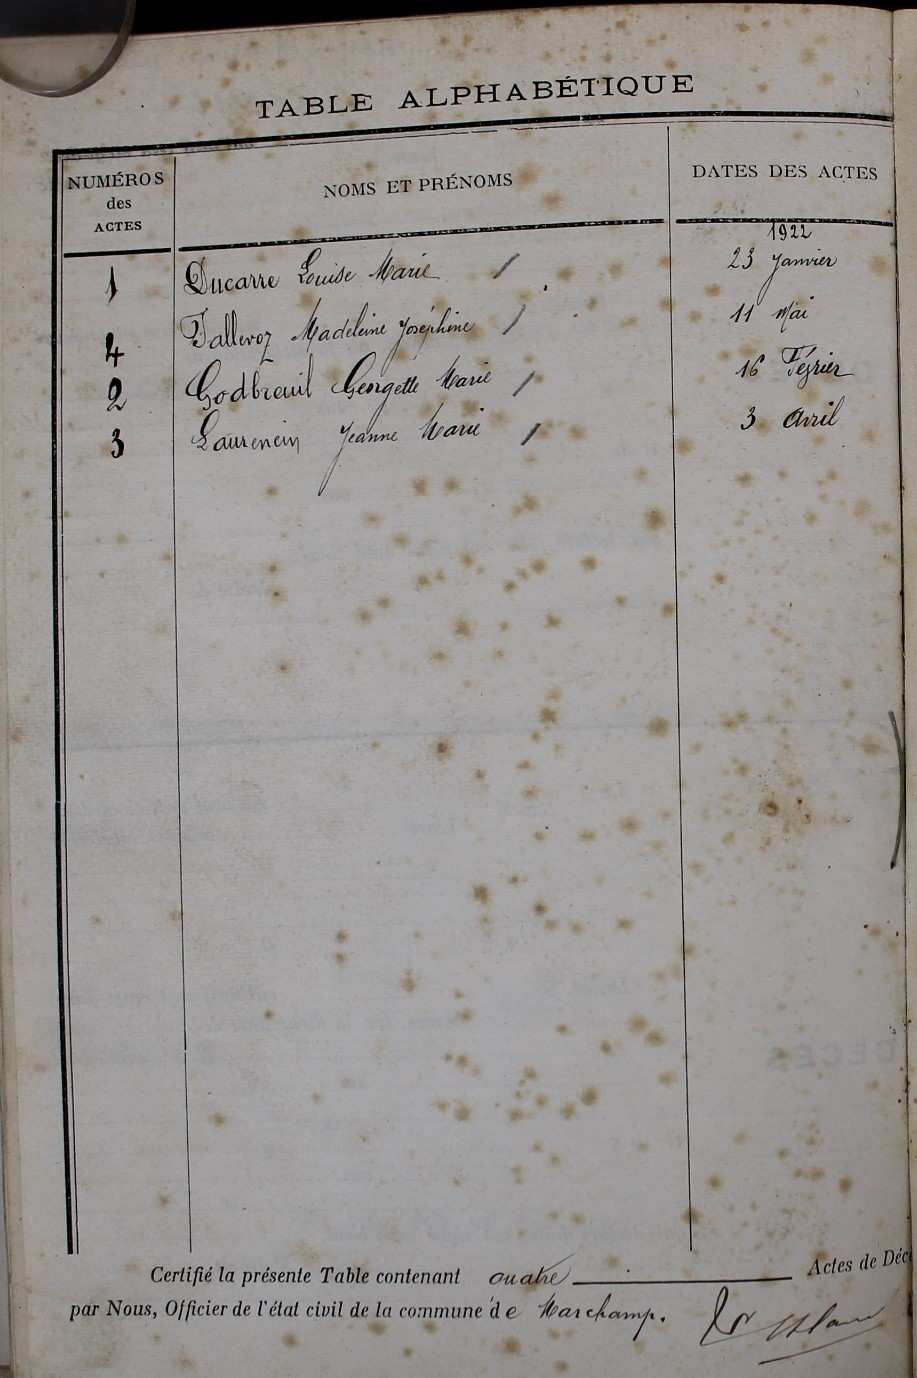 TABLE ALPHABÉTIQUE
NUMÉROS des ACTES NOMS ET PRÉNOMS DATES DES ACTES
1922
1 Ducarre Louise Marie 23 Janvier
4 Tallevoz Madeleine Joséphine 11 Mai
2 Godbreuil Georgette Marie 16 Février
3 Laurencin Jeanne Marie 3 Avril
Certifié la présente Table contenant quatre Actes de Déc
par Nous, Officier de l'état civil de la commune de Marchamp.